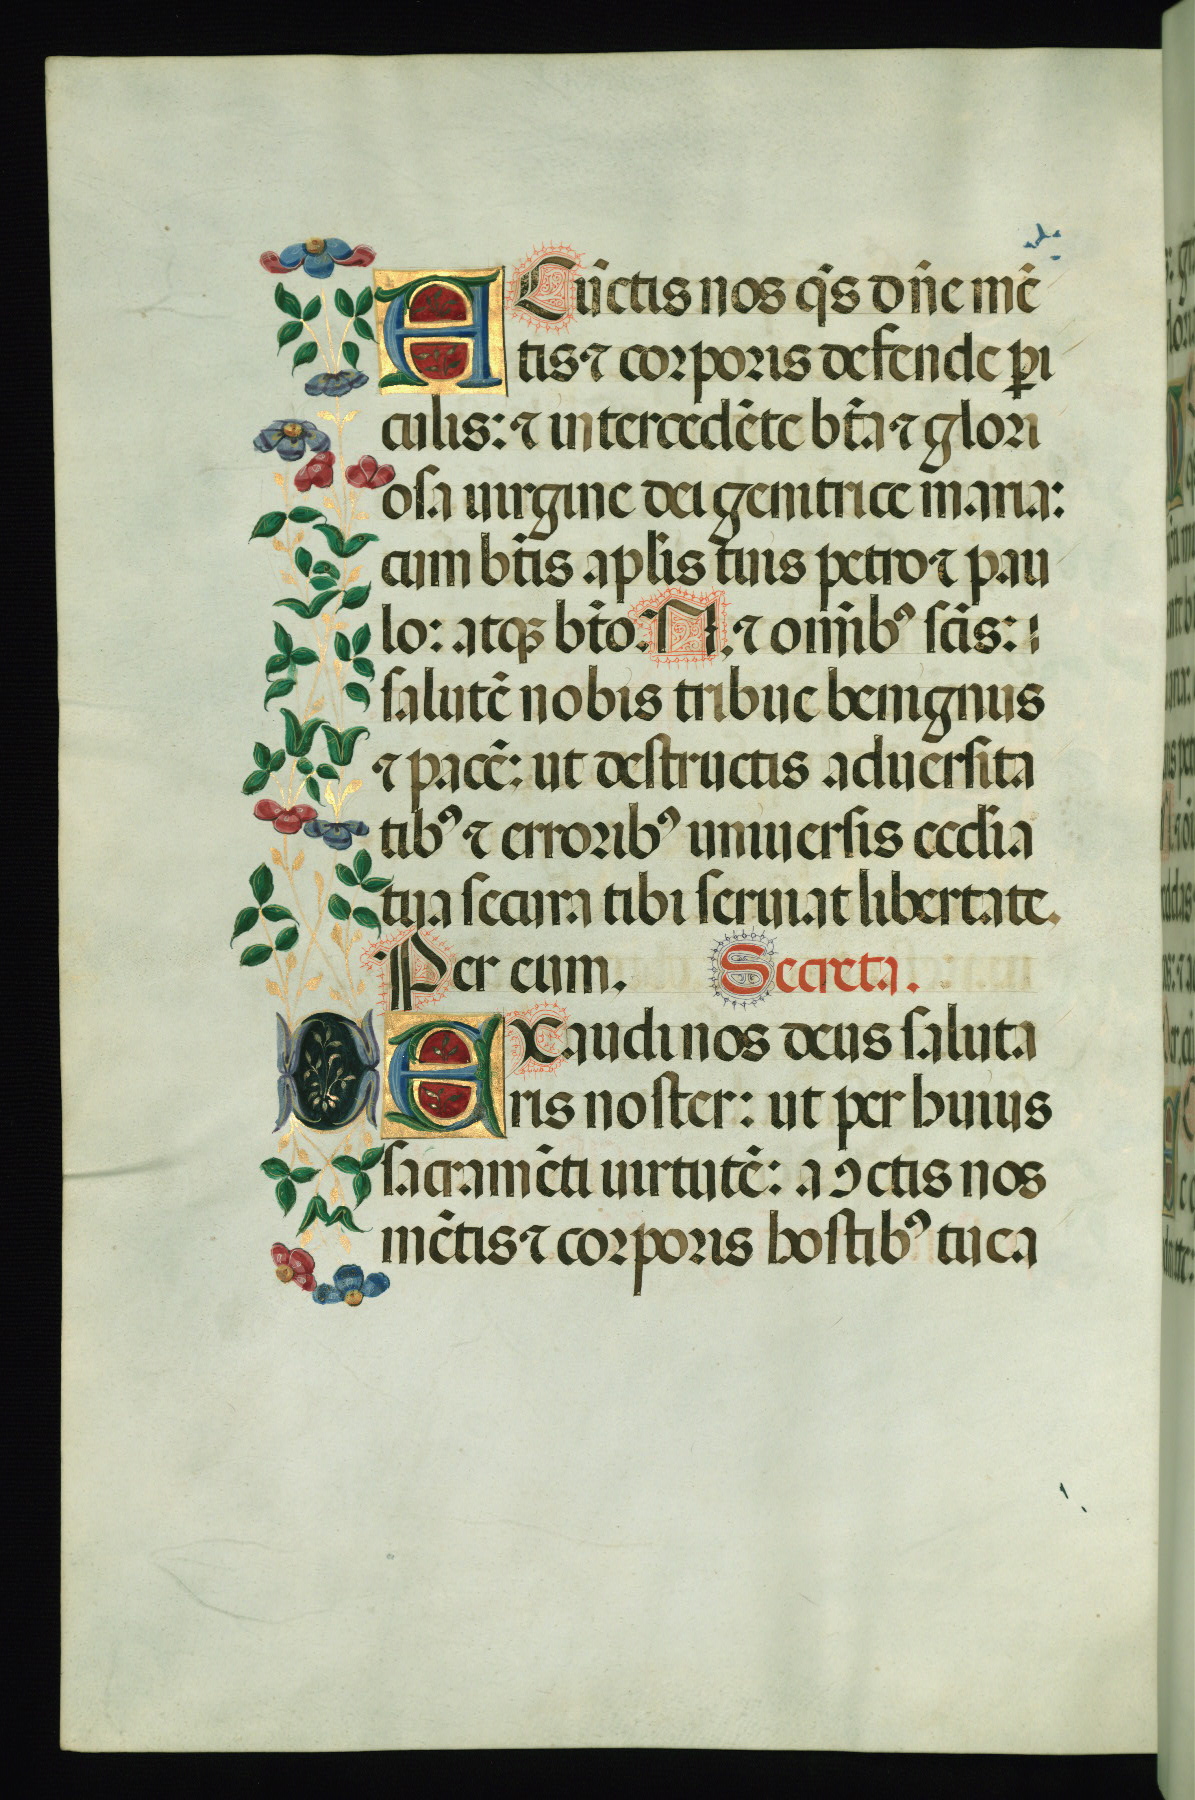 A Cūctis nos q̄s dn̄e mē
tis ⁊ corporis defende ꝑi
culis: ⁊ intercedēte bt̄a ⁊ glori
osa uirgine dei genitrice maria:
cum bt̄is aplis tuis petro ⁊ pau
lo: atqꝫ bt̄o. N. ⁊ om̄ibꝰ sc̄is:
salutē nobis tribue benignus
⁊ pacē: ut destructis aduersita
tibꝰ ⁊ erroribꝰ uniuersis eccl̄ia
tua secura tibi seruiat libertate.
Per eum. Secreta.
EXaudi nos deus saluta
ris noster: ut per huius
sacramēti uirtutē: a ꝯctis nos
mētis ⁊ corporis hostibꝰ tuea